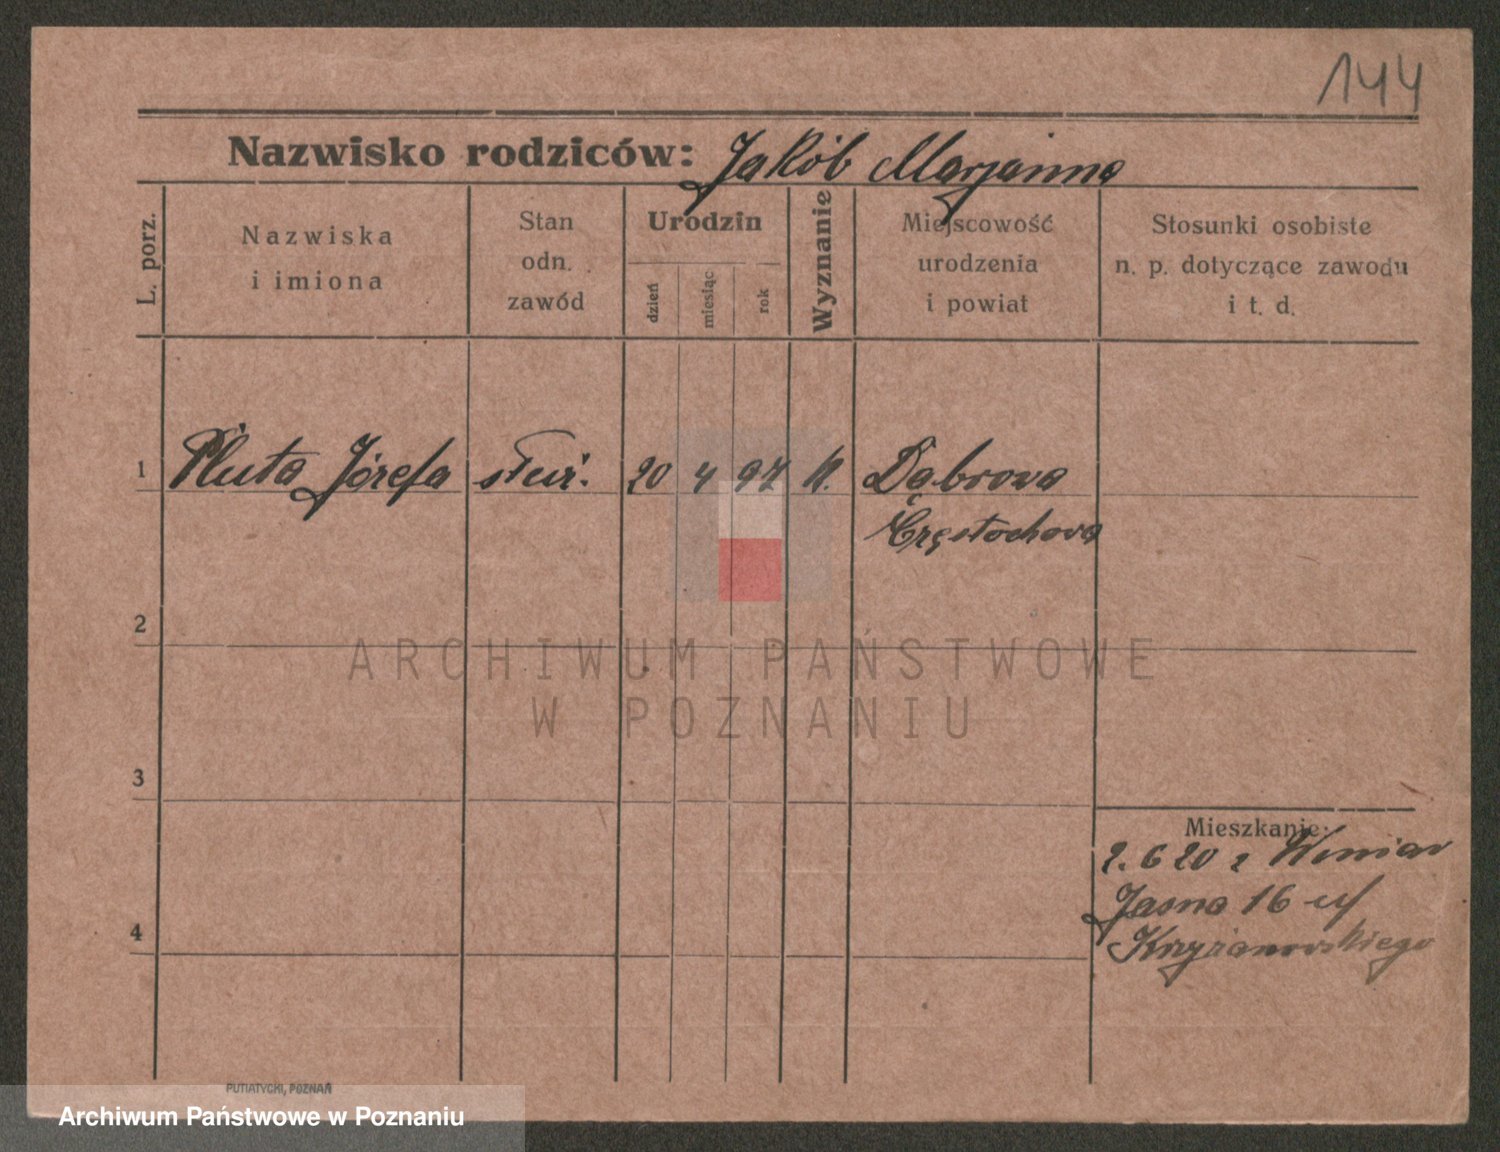 144
Nazwisko rodziców: Jakób Marjanna
L. porz.
Nazwiska
i imiona
Stan
odn.
zawód
Urodzin
dzień
miesiąc
rok
Wyznanie
Miejscowość
urodzenia
i powiat
Stosunki osobiste
n. p. dotyczące zawodu
i t. d.
1 Pluta Józefa służ. 20 4 97 k. Dąbrowa
Częstochowa
2
ARCHIWUM PAŃSTWOWE
W POZNANIU
3
Mieszkanie:
2.6 20 z Winiar
Jasna 16
4
Krzyżanowskiego
PUTIATYCKI, POZNAŃ
Archiwum Państwowe w Poznaniu